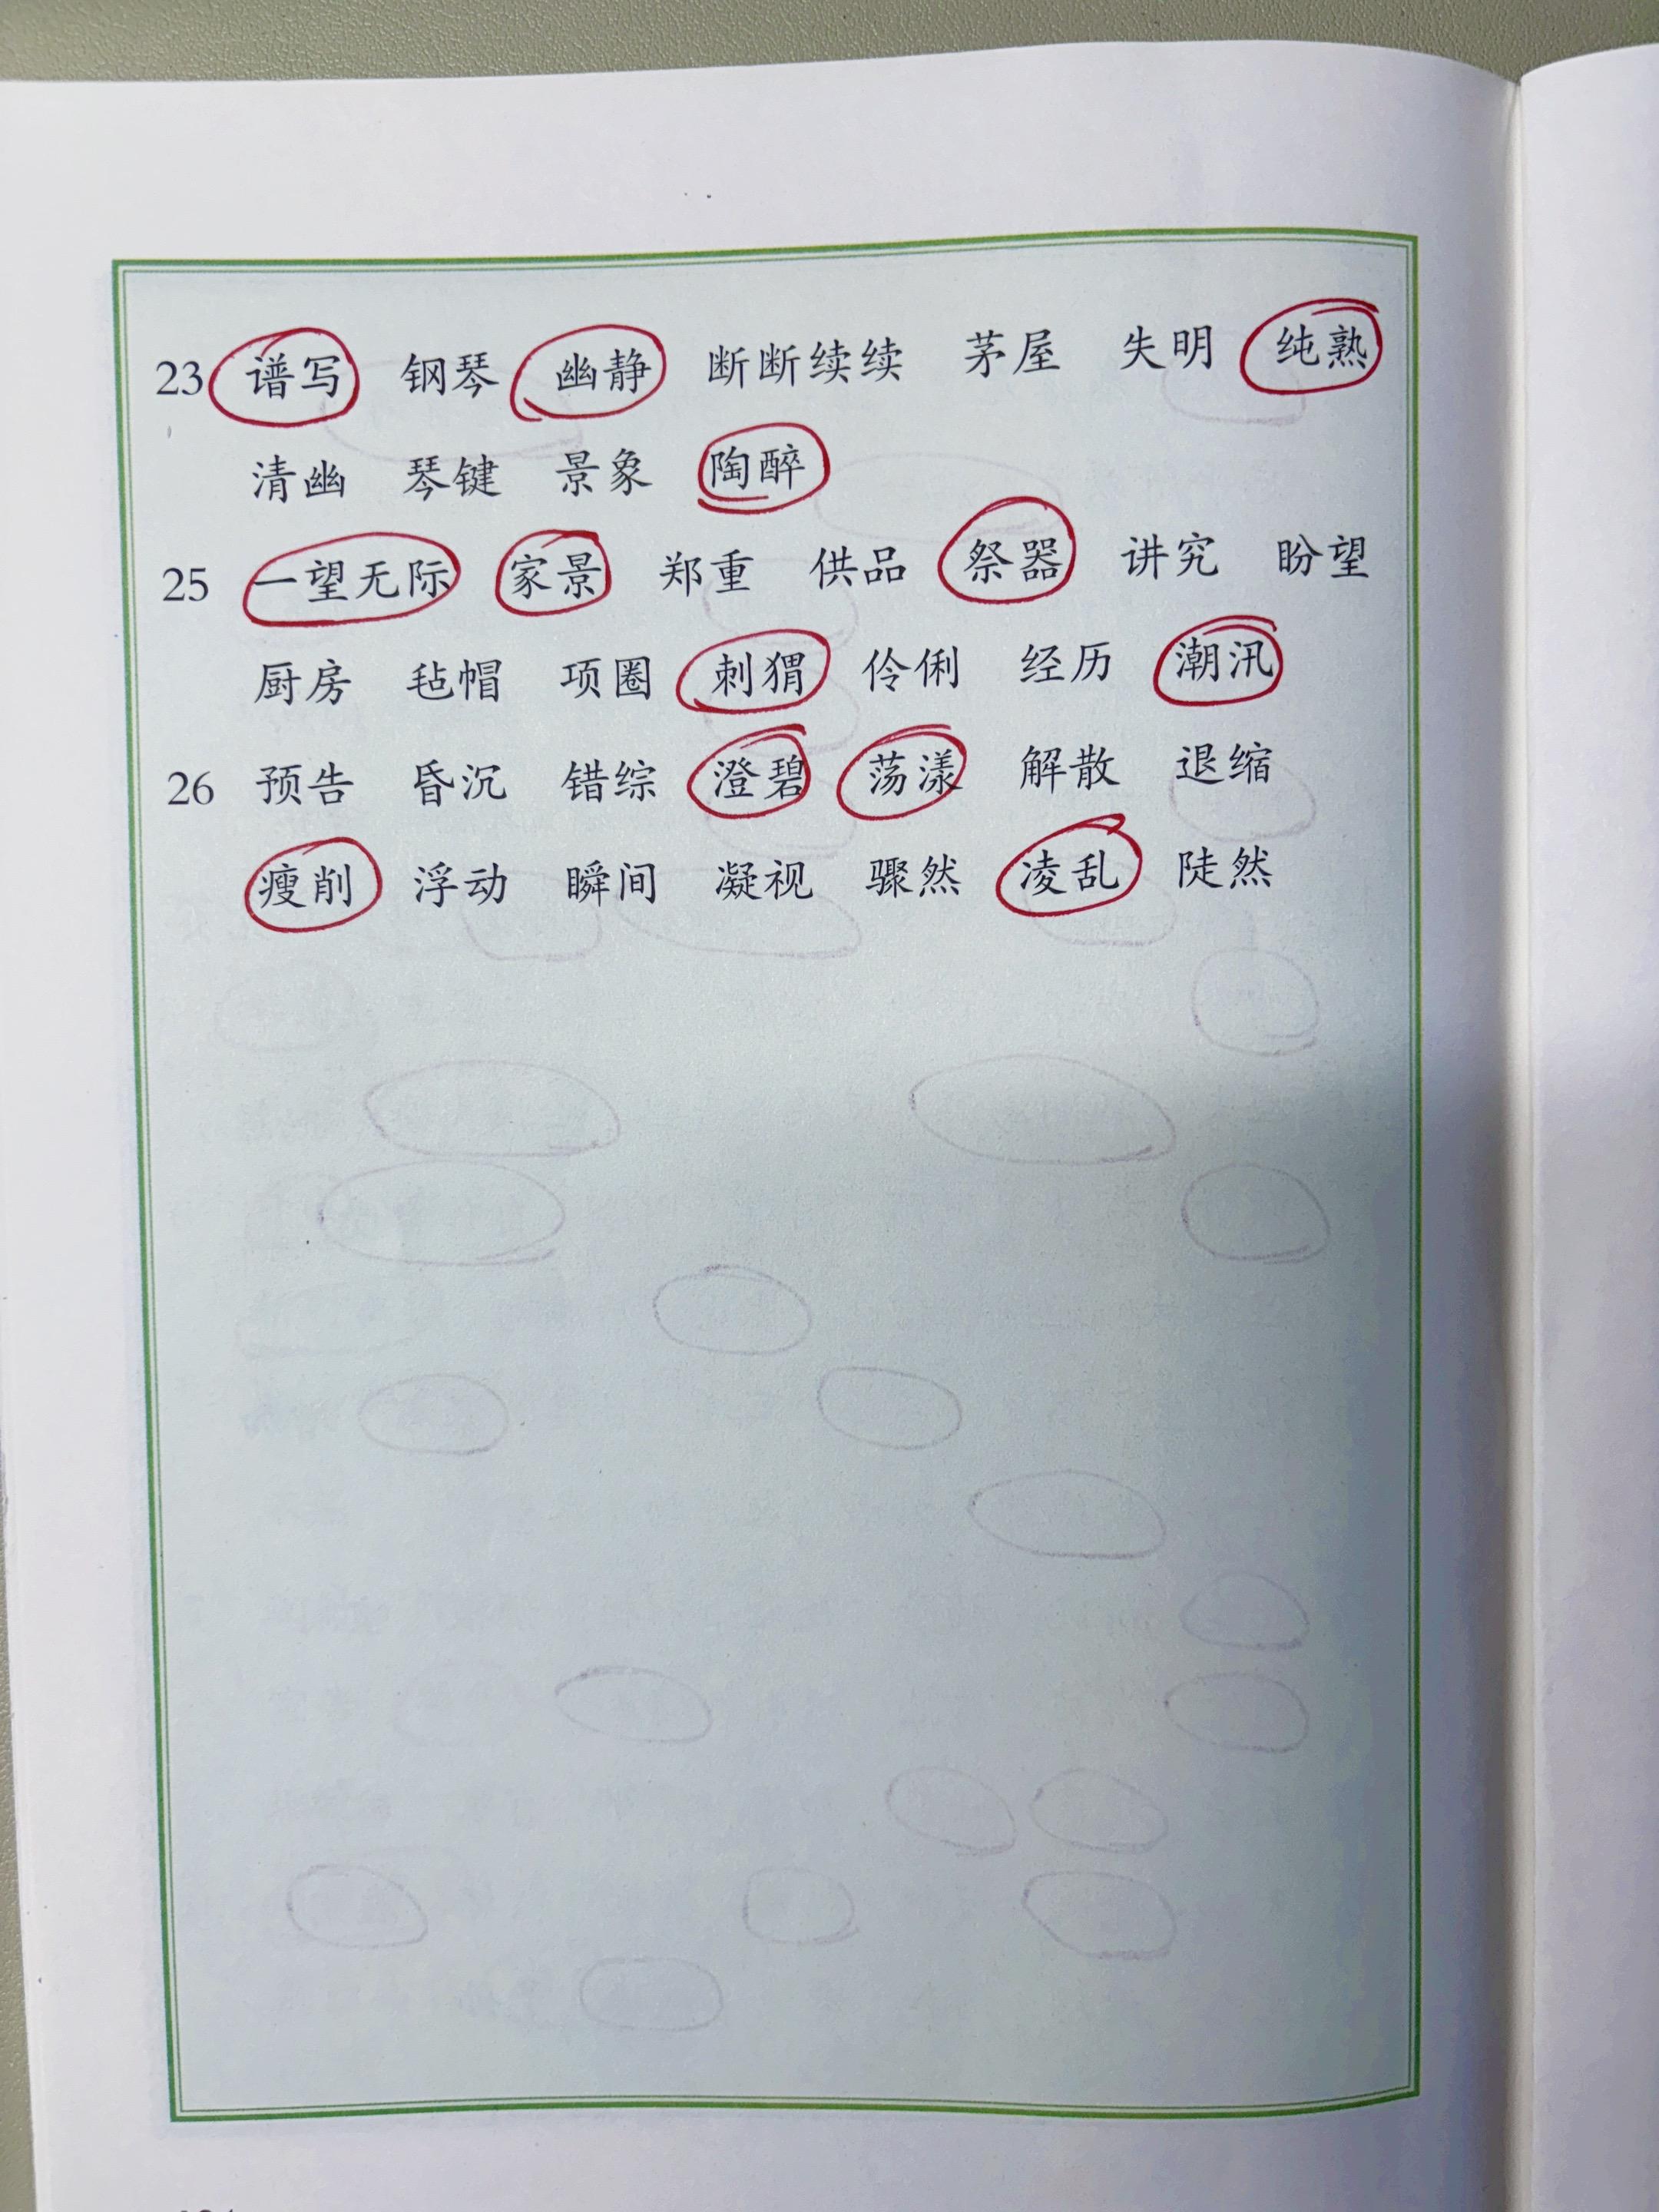 23 谱写 钢琴 幽静 断断续续 茅屋 失明 纯熟
清幽 琴键 景象 陶醉
25 一望无际 家景 郑重 供品 祭器 讲究 盼望
厨房 毡帽 项圈 刺猬 伶俐 经历 潮汛
26 预告 昏沉 错综 澄碧 荡漾 解散 退缩
瘦削 浮动 瞬间 凝视 骤然 凌乱 陡然